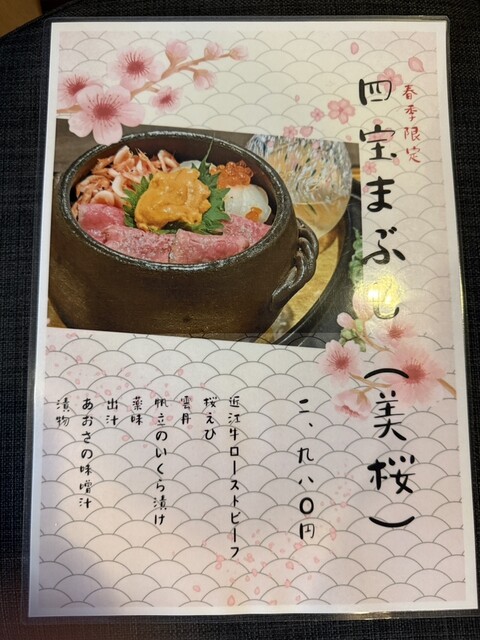 春季限定
四宝まぶし(美桜)
二、九八〇円
近江牛ローストビーフ
桜えび
雲丹
帆立のいくら漬け
薬味
出汁
あおさの味噌汁
漬物